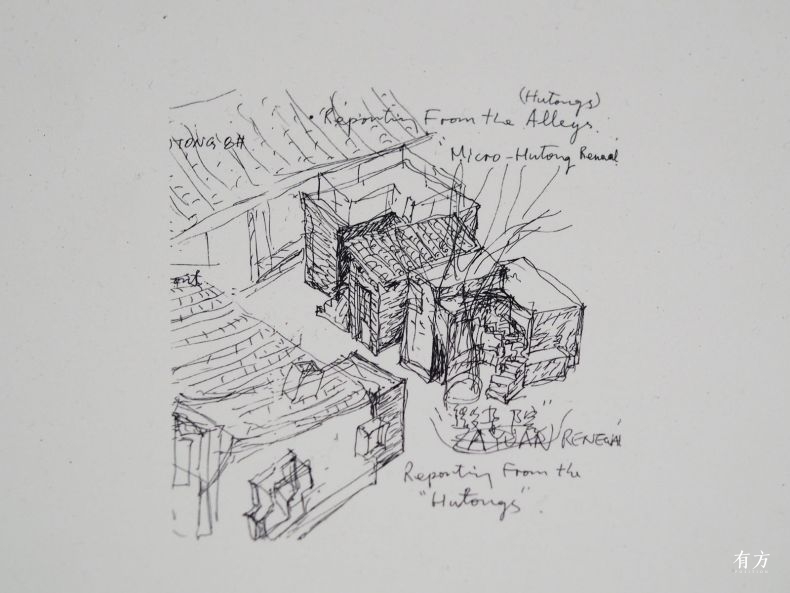 (Hutongs)
"Reporting From the Alleys.
UTONG 8#
"Micro-Hutong Renewal
院"
RENEWAL
Reporting From the
"Hutongs".
有方